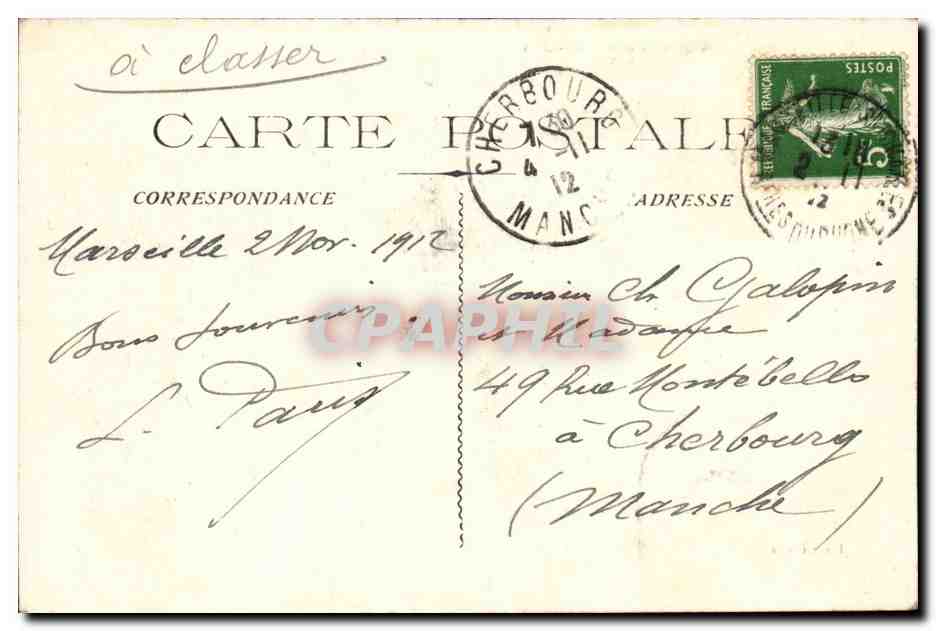 à classer
CARTE POSTALE
CORRESPONDANCE
ADRESSE
CHERBOURG
7 30
4 -11
12
MANCHE
RÉPUBLIQUE FRANÇAISE
POSTES
5
13 18
2 11
12
BOUCHES DU RHONE
Marseille 2 Nov. 1912
Bons Souvenirs
L. Paris
Monsieur Ch Galopin
et Madame
49 Rue Montébello
à Cherbourg
(Manche)
CPAPHIL